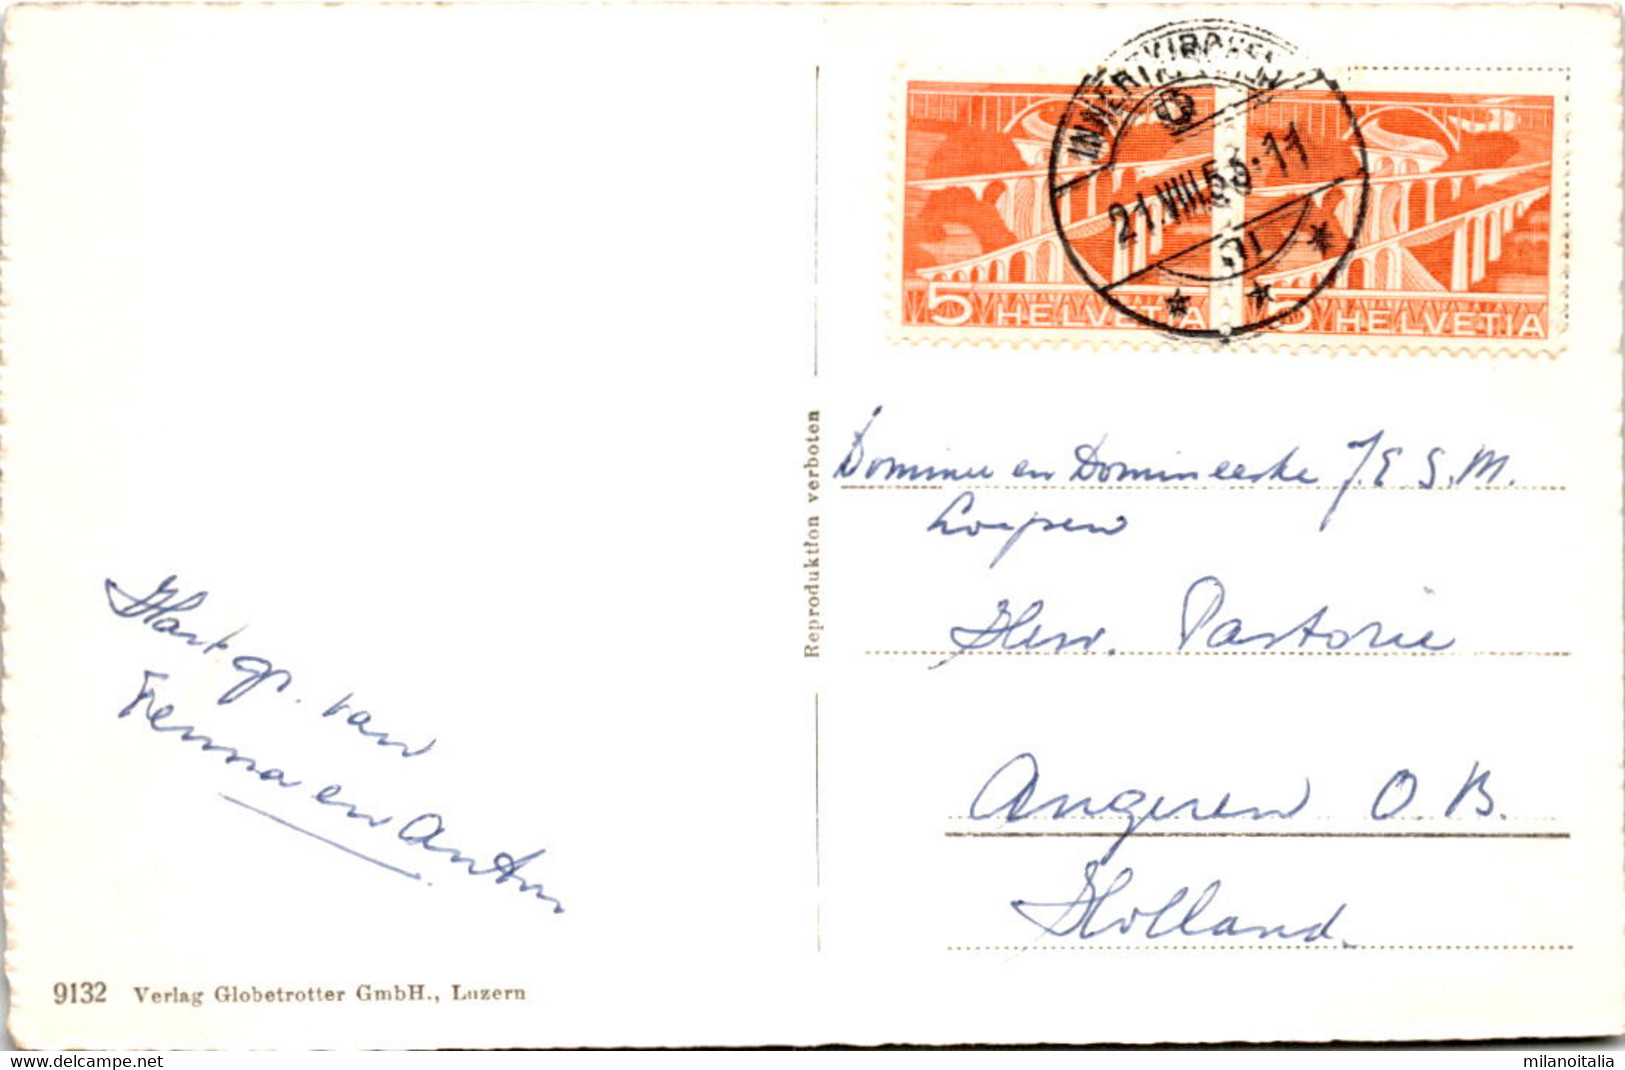 INNERTKIRCHEN
21.VIII.53-11
5 HELVETIA
5 HELVETIA
Reproduktion verboten
Dominee en Domineeske J.E.S.M.
Loepen
Herv. Pastorie
Angeren O.B.
Holland.
Hart. gr. van
Fenna en Anton
9132 Verlag Globetrotter GmbH., Luzern
delcampe.net
milanoitalia